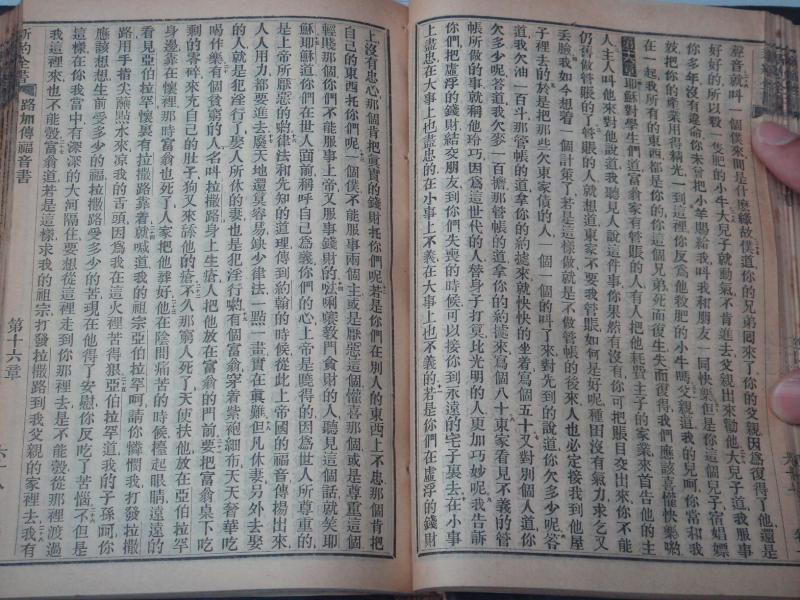 聲音就叫一個僕來問是什麼緣故僕道你的兄弟囘來了你的父親因爲復得了他還是
好好的所以殺一隻肥的小牛大兒子就動氣不肯進去父親出來勸他大兒子道我服事
你多年沒有違命你未曾把小羊賜給我叫我和朋友一同快樂但是你這個兒子宿娼嫖
就把你的產業用得精光一到這裡你反爲他殺肥的小牛嗎父親道我的兒呵你常和我
在一起我所有的東西都是你的你這個兄弟死而復生失而復得我們應該喜懽快樂喲
第十六章 耶穌對學生們道富翁家有管賬的人有人把他耗費主子的家業來首告他的主
人主人叫他來對他說道我聽見人說這件事你果然有沒有你可把賬目交出來你不能
仍舊做管賬的了管賬的人就想道東家不要我管賬如何是好呢種田沒有氣力求乞又
丟臉我如今想着一個計策了若是這樣做就是不做管帳的後來人也必定接我到他屋
子裡去的於是把那些欠東家債的人一個一個的叫了來對先到的說道你欠多少呢答
道我欠油一百斗那管帳的道拿你的約據來就快快的坐着寫個五十又對別個人道你
欠多少呢答道我欠麥一百擔那管帳的道拿你的約據來寫個八十東家看見不義的管
帳所做的事就稱他玲巧因爲這世代的人替身子打算比光明的人更加巧妙呢我告訴
你們把虛浮的錢財結交朋友到你們失喪的時候可以接你到永遠的宅子裏去在小事
上盡忠在大事上也盡忠的在小事上不義在大事上也不義的若是你們在虛浮的錢財
上沒有忠心那個肯把眞實的錢財托你們呢若是你們在別人的東西上不忠那個肯把
自己的東西托你們呢一個僕不能服事兩個主或是厭惡這個懽喜那個或是尊重這個
輕賤那個你們不能服事上帝又服事錢財的𠲎唎㘔教門貪財的人聽見這個話就笑耶
穌耶穌道你們在世人面前稱呼自己爲義你們的心上帝是曉得的因爲世人所尊重的
是上帝所厭惡的喲律法和先知的道理傳到約翰的時候從此上帝國的福音傳揚出來
人人用力都要進去廢天地還莫容易缺少律法一點一畫實在眞難但凡休妻另外去娶
的人就是犯淫行了娶人所休的妻也是犯淫行喲有個富翁穿着紫袍細布天天奢華吃
喝作樂有個貧窮的人名叫拉撒路身上生瘡人把他放在富翁的門前要把富翁桌下吃
剩的零碎來充自己的肚子狗又來舔他的瘡不久那窮人死了天使扶他放在亞伯拉罕
身邊靠在懷裡那時富翁也死了人家把他葬好他在陰間痛苦的時候擡起眼睛遠遠的
看見亞伯拉罕懷裏有拉撒路靠着就喊道我的祖宗亞伯拉罕呵請你憐憫我打發拉撒
路用手指尖蘸點水來凉我的舌頭因爲我在這火裡苦得狠亞伯拉罕道我的子孫呵你
應該想想生前愛多少的福拉撒路受多少的苦現在他得了安慰你反吃了苦惱不但是
這樣在你我當中有深深的大河隔住要想從這裡走到你那裡去是不能彀從那裡渡過
我這裡來也不能彀富翁道若是這樣求我的祖宗打發拉撒路到我父親的家裡去我有
新約全書 路加傳福音書 第十六章 六十八